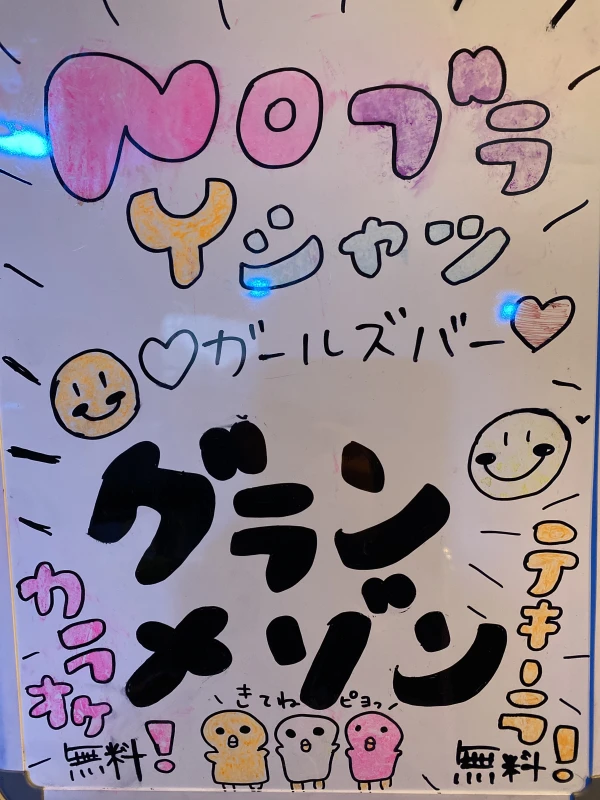 NOブラ
Yシャツ
♡ガールズバー♡
グラン
メゾン
カラオケ
無料!
テキーラ
無料!
きてね ピヨっ